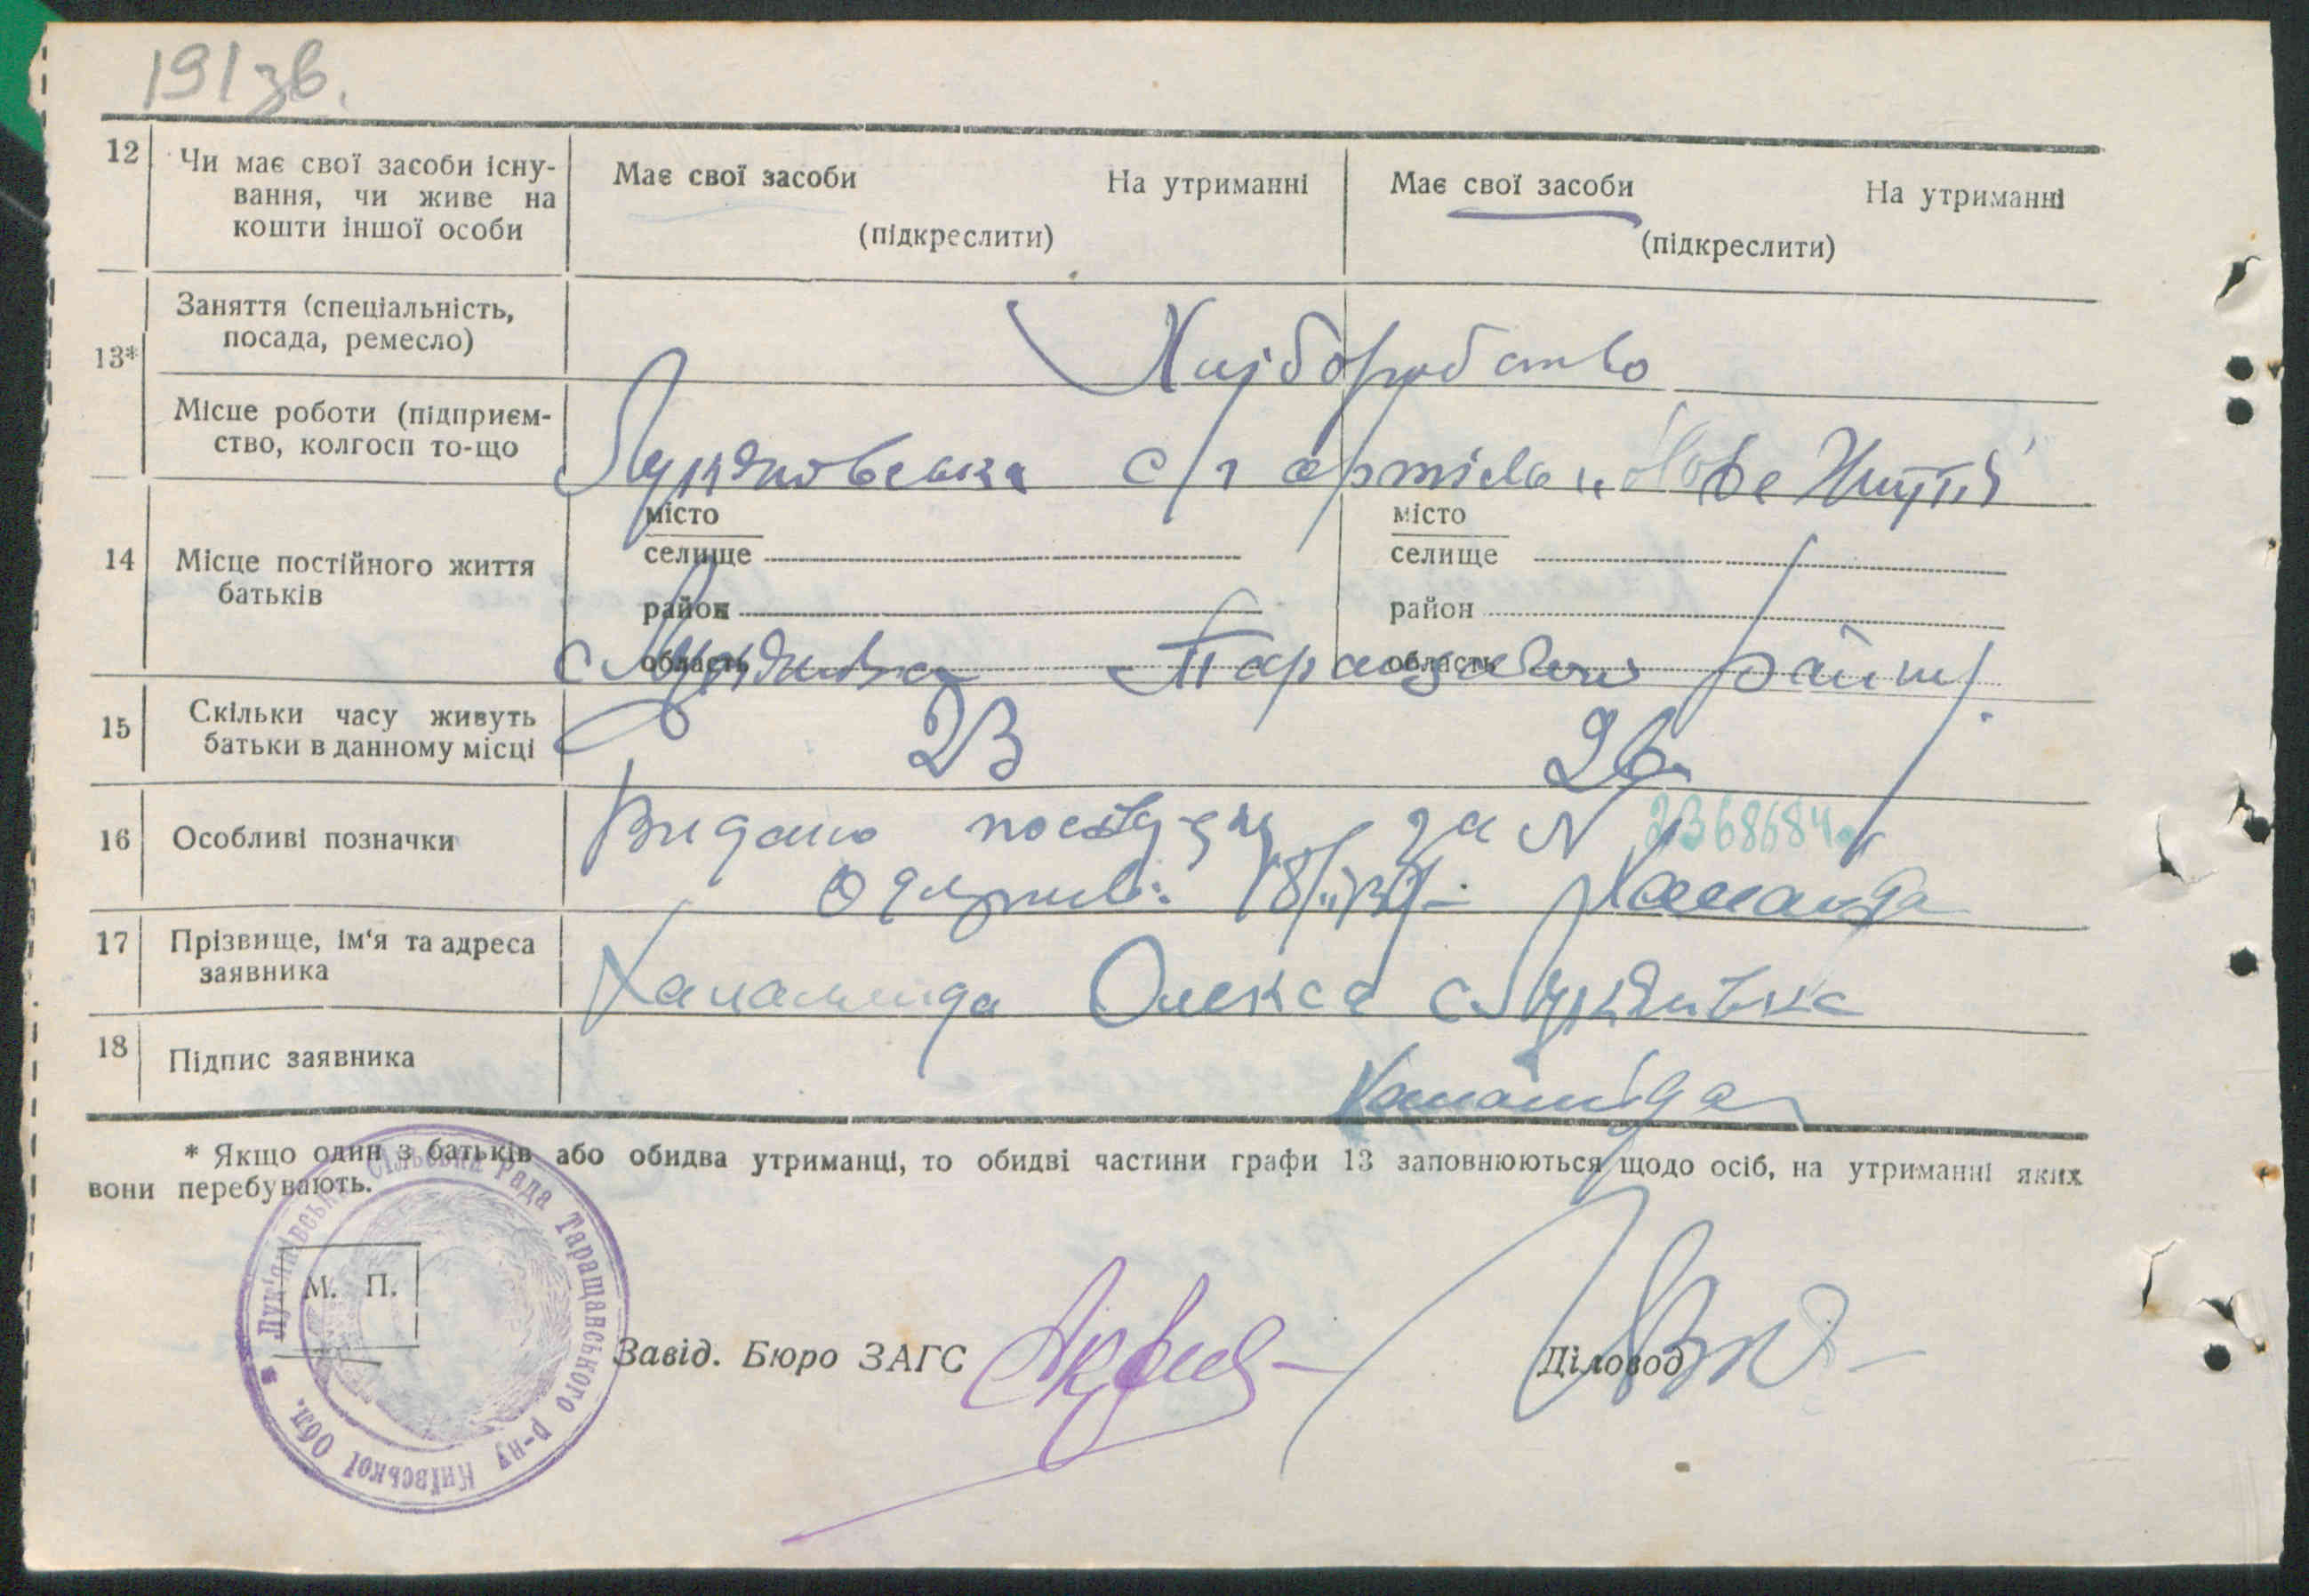 191 зв.
12 Чи має свої засоби існу-
вання, чи живе на
кошти іншої особи
Має свої засоби На утриманні
(підкреслити)
Має свої засоби На утриманні
(підкреслити)
13*
Заняття (спеціальність,
посада, ремесло)
Хліборобство
Місце роботи (підприєм-
ство, колгосп то-що
Лукяновська с/г артіль „Нове Життя"
14 Місце постійного життя
батьків
місто
селище
район
область
місто
селище
район
область
с Лукянівка Таращанськ район
15 Скільки часу живуть
батьки в данному місці
23 26
16 Особливі позначки
Видано посвідку за № 2368684
Одержив:
17 Прізвище, ім'я та адреса
заявника
Олекса с Лукянівка
18 Підпис заявника
* Якщо один з батьків або обидва утриманці, то обидві частини графи 13 заповнюються щодо осіб, на утриманні яких
вони перебувають.
Лук'янівська сільська рада Таращанського р-ну Київської Обл.
М. П.
Завід. Бюро ЗАГС
Діловод